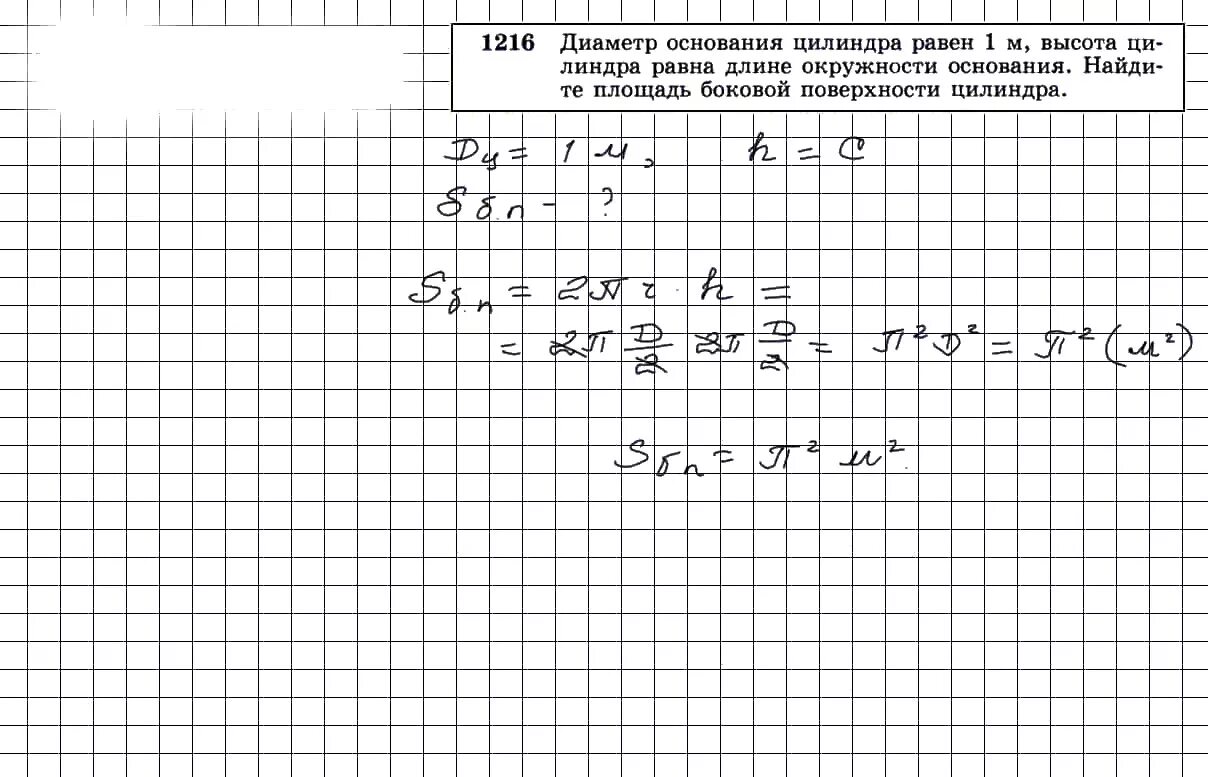 1216 Диаметр основания цилиндра равен 1 м, высота ци-
линдра равна длине окружности основания. Найди-
те площадь боковой поверхности цилиндра.
Dц = 1 м, h = C
S б.п - ?
Sб.п = 2πr · h =
= 2π D/2 · 2π D/2 = π²D² = π² (м²)
Sбп = π² м².